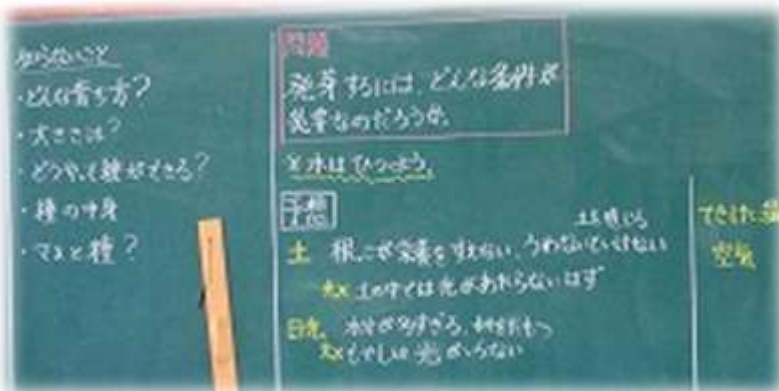 知らないこと
・どんな育ち方？
・大きさは？
・どうやって種ができる？
・種の中身
・マメと種？
問題
発芽するには、どんな条件が
必要なのだろうか。
※水はひつよう。
予想
土 根っこが栄養をすえない、うめないといけない
土の中では光があたらないはず
日光 水分が多すぎる、
もやしは光がいらない
空気